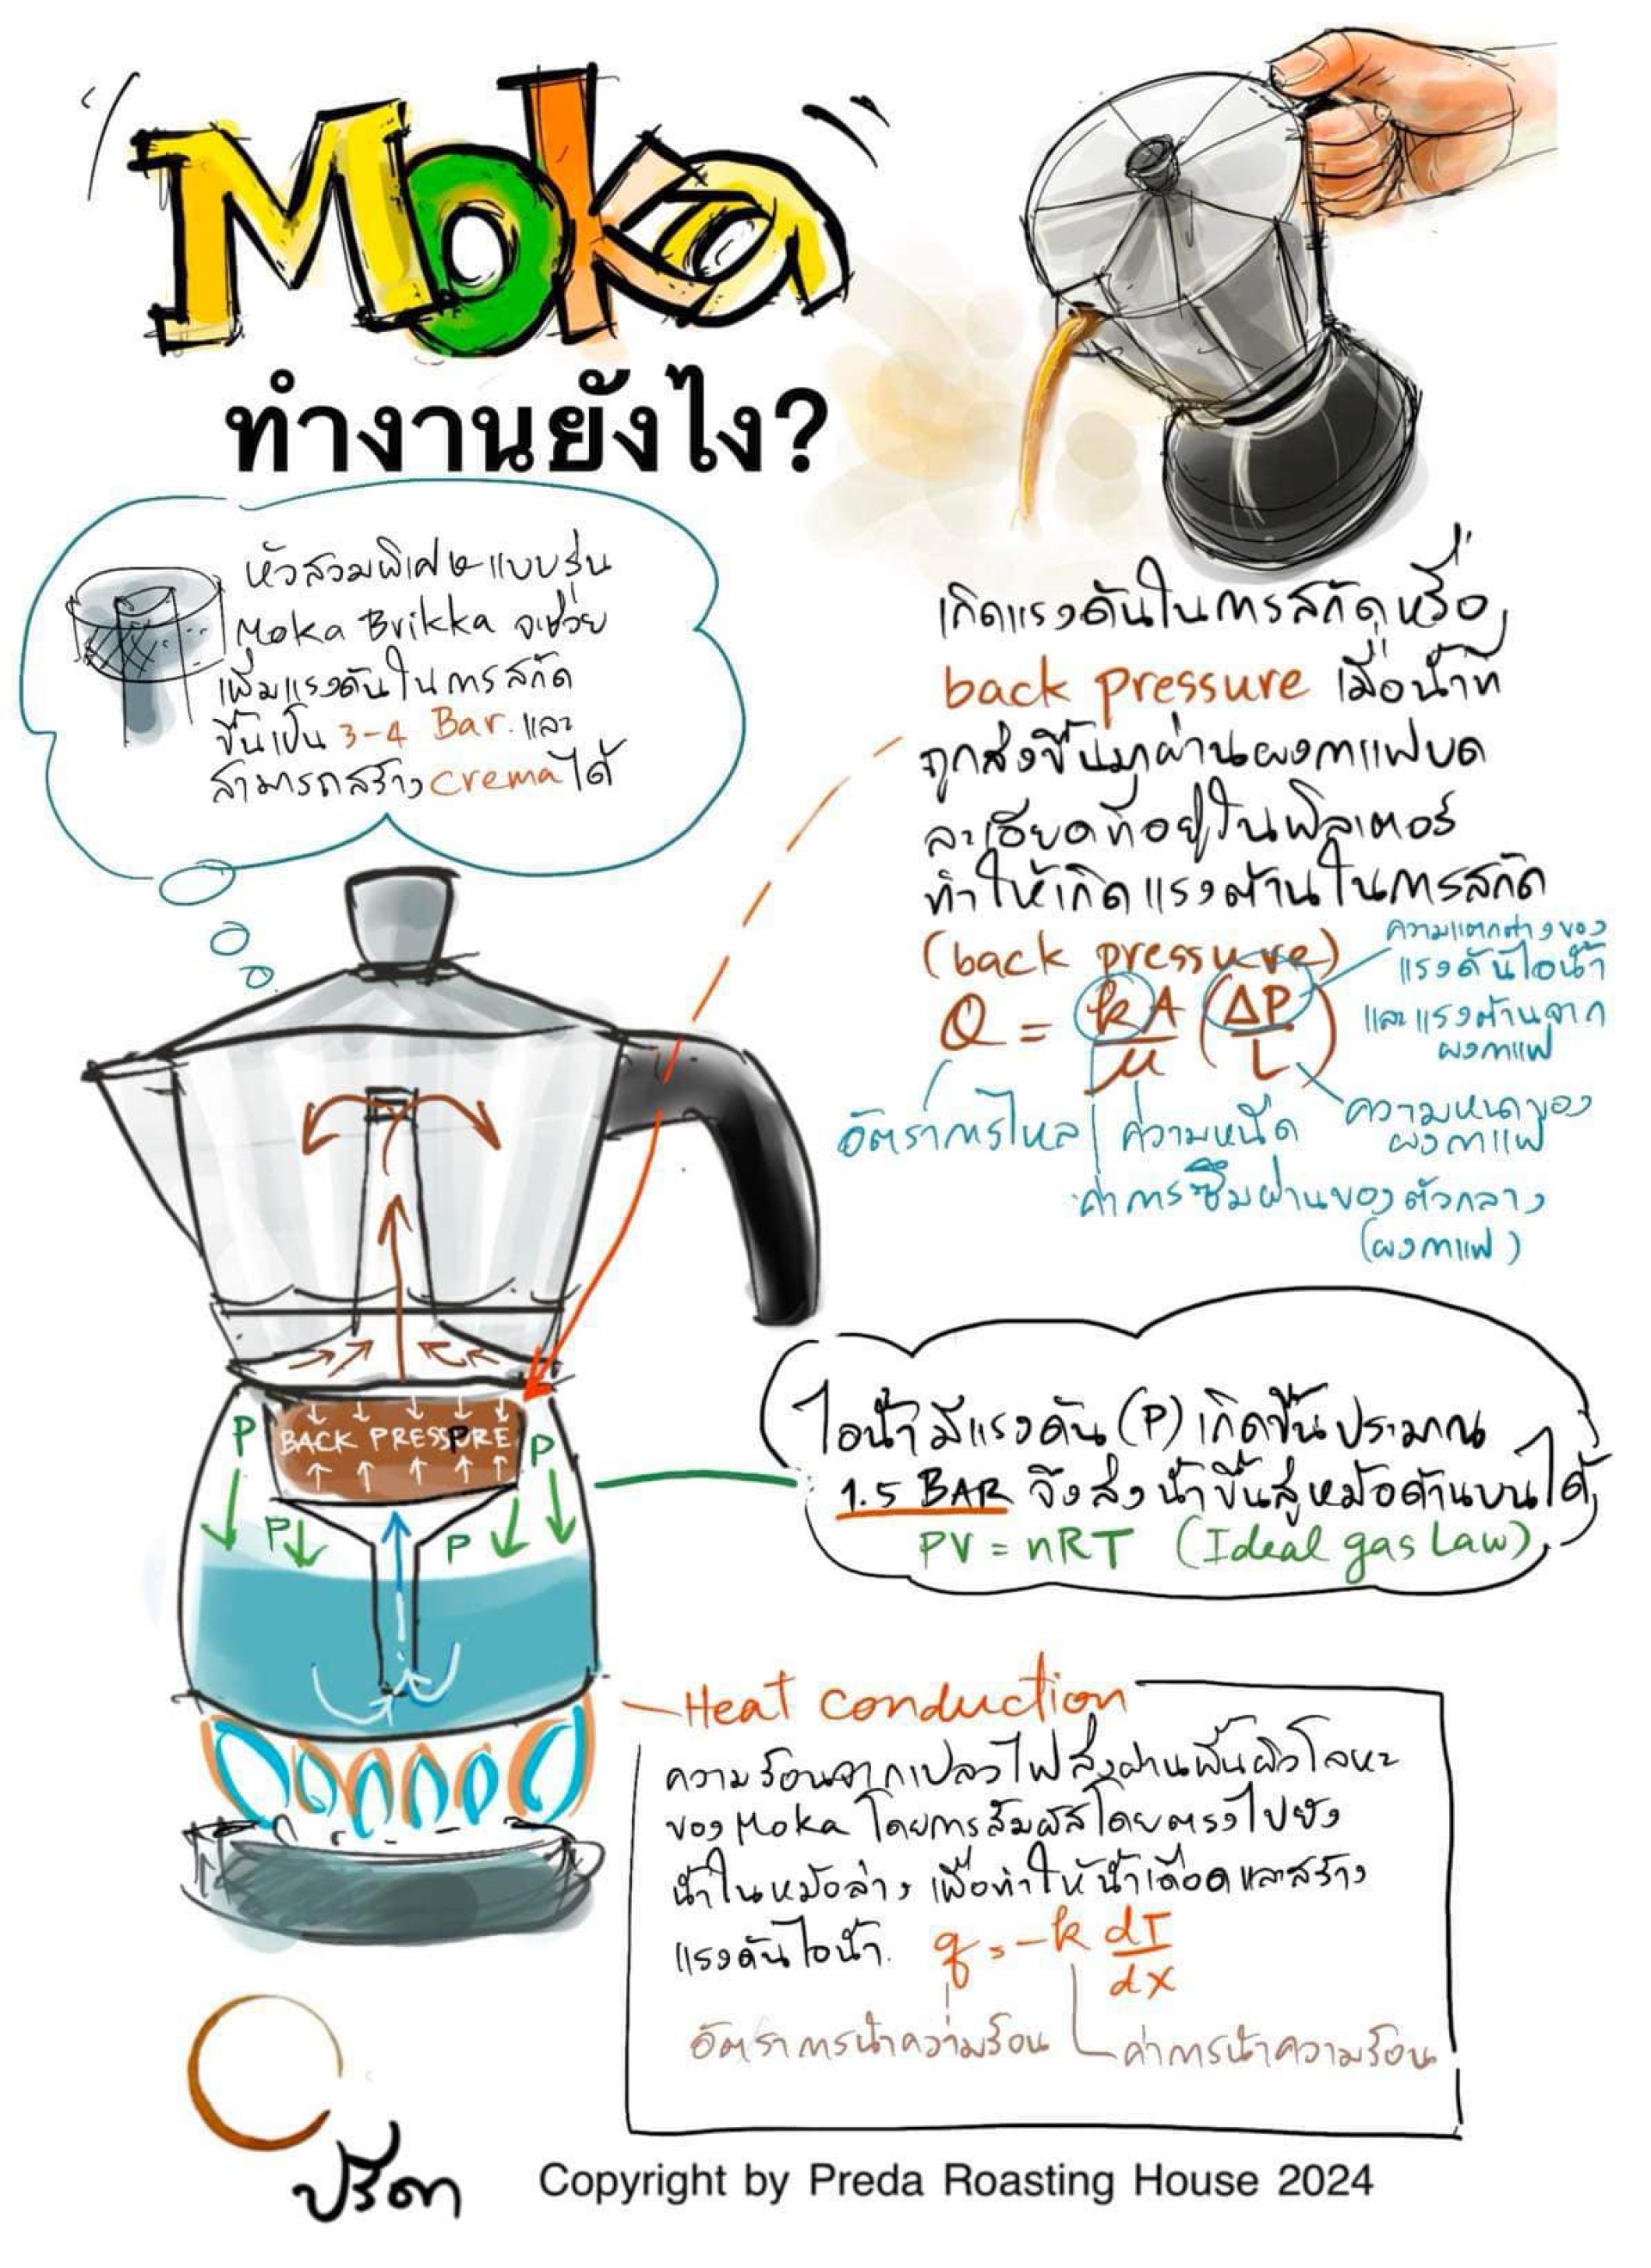 "Moka"
ทำงานยังไง?
หัวสวมพิเศษแบบรุ่น
Moka Brikka จะช่วย
เพิ่มแรงดันในการสกัด
ขึ้นเป็น 3-4 Bar. และ
สามารถสร้าง crema ได้
เกิดแรงดันในการสกัดหรือ
back pressure เมื่อน้ำที่
ถูกส่งขึ้นมาผ่านผงกาแฟบด
ละเอียดที่อยู่ในฟิลเตอร์
ทำให้เกิดแรงต้านในการสกัด
(back pressure)
Q = kA/μ (ΔP/L)
ความแตกต่างของ
แรงดันไอน้ำ
และแรงต้านจาก
ผงกาแฟ
อัตราการไหล
ความหนืด
ความหนาของ
ผงกาแฟ
ค่าการซึมผ่านของตัวกลาง
(ผงกาแฟ)
P
BACK PRESSURE
P
P
P
P
ไอน้ำมีแรงดัน (P) เกิดขึ้นประมาณ
1.5 BAR จึงส่งน้ำขึ้นสู่หม้อด้านบนได้
PV = nRT (Ideal gas Law)
Heat conduction
ความร้อนจากเปลวไฟส่งผ่านพื้นผิวโลหะ
ของ Moka โดยการสัมผัสโดยตรงไปยัง
น้ำในหม้อล่าง เพื่อทำให้น้ำเดือดและสร้าง
แรงดันไอน้ำ. q = -k dT/dx
อัตราการนำความร้อน
ค่าการนำความร้อน
ปรีดา
Copyright by Preda Roasting House 2024